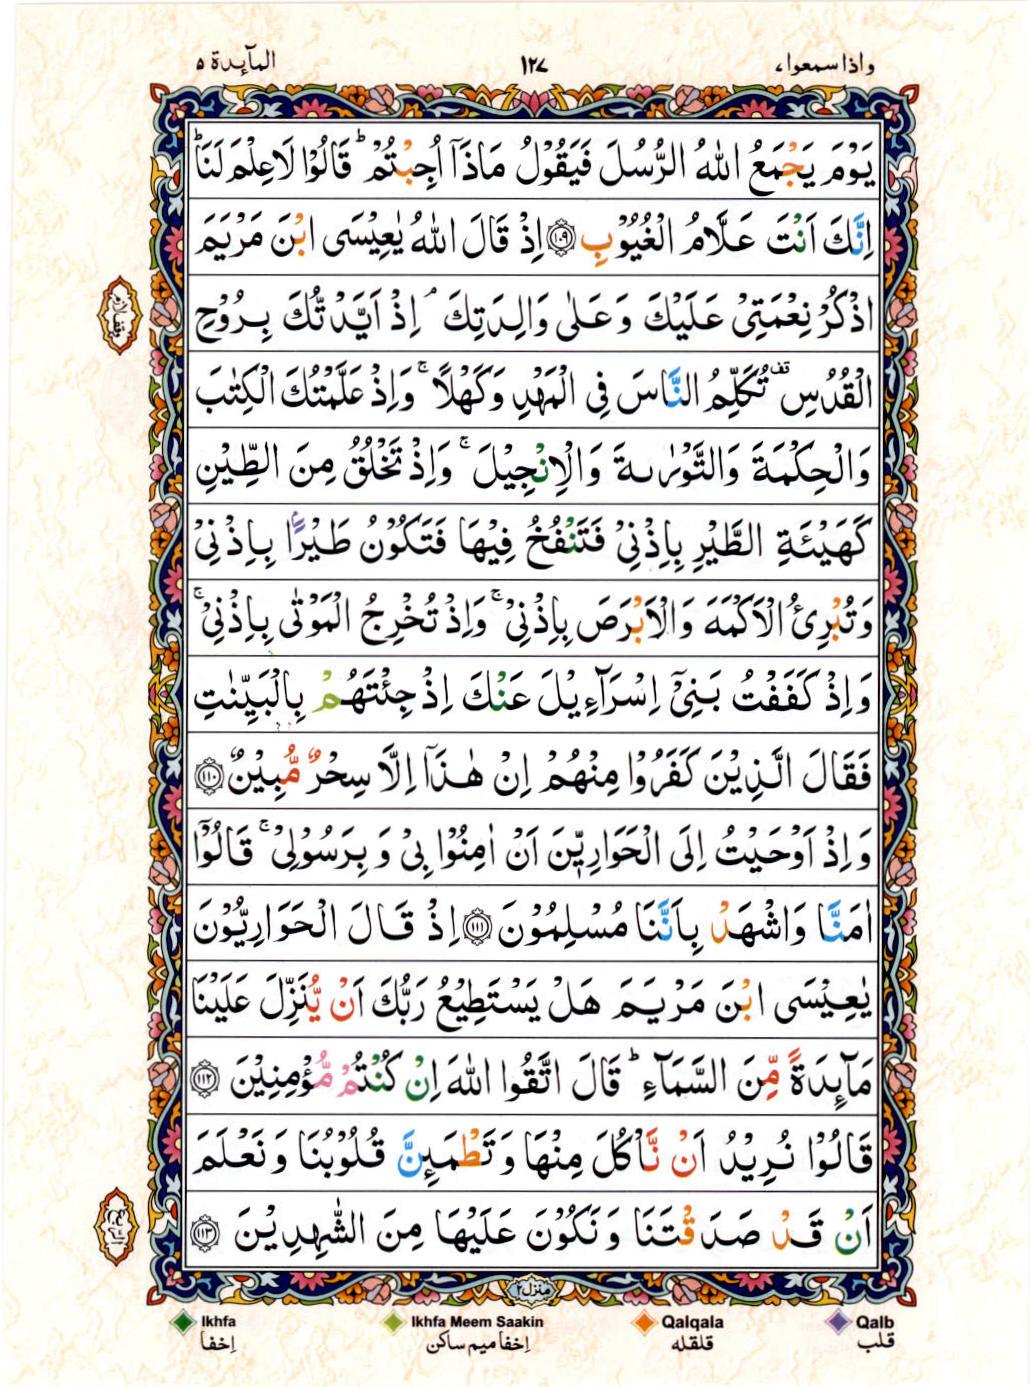 واذا سمعوا،
١٢٧
المآىِٕدة ٥
يَوْمَ يَجْمَعُ اللهُ الرُّسُلَ فَيَقُوْلُ مَاذَاۤ اُجِبْتُمْ ؕ قَالُوْا لَا عِلْمَ لَنَا ؕ
اِنَّكَ اَنْتَ عَلَّامُ الْغُيُوْبِ ﴿١٠٩﴾ اِذْ قَالَ اللهُ يٰعِيْسَى ابْنَ مَرْيَمَ
اذْكُرْ نِعْمَتِيْ عَلَيْكَ وَعَلٰى وَالِدَتِكَ ۘ اِذْ اَيَّدْتُّكَ بِرُوْحِ
الْقُدُسِ قف تُكَلِّمُ النَّاسَ فِى الْمَهْدِ وَكَهْلًا ۚ وَاِذْ عَلَّمْتُكَ الْكِتٰبَ
وَالْحِكْمَةَ وَالتَّوْرٰىةَ وَالْاِنْجِيْلَ ۚ وَاِذْ تَخْلُقُ مِنَ الطِّيْنِ
كَهَيْـَٔةِ الطَّيْرِ بِاِذْنِيْ فَتَنْفُخُ فِيْهَا فَتَكُوْنُ طَيْرًاۢ بِاِذْنِيْ
وَتُبْرِئُ الْاَكْمَهَ وَالْاَبْرَصَ بِاِذْنِيْ ۚ وَاِذْ تُخْرِجُ الْمَوْتٰى بِاِذْنِيْ ۚ
وَاِذْ كَفَفْتُ بَنِيْۤ اِسْرَآءِيْلَ عَنْكَ اِذْ جِئْتَهُمْ بِالْبَيِّنٰتِ
فَقَالَ الَّذِيْنَ كَفَرُوْا مِنْهُمْ اِنْ هٰذَاۤ اِلَّا سِحْرٌ مُّبِيْنٌ ﴿١١٠﴾
وَاِذْ اَوْحَيْتُ اِلَى الْحَوَارِيّٖنَ اَنْ اٰمِنُوْا بِيْ وَبِرَسُوْلِيْ ۚ قَالُوْۤا
اٰمَنَّا وَاشْهَدْ بِاَنَّنَا مُسْلِمُوْنَ ﴿١١١﴾ اِذْ قَالَ الْحَوَارِيُّوْنَ
يٰعِيْسَى ابْنَ مَرْيَمَ هَلْ يَسْتَطِيْعُ رَبُّكَ اَنْ يُّنَزِّلَ عَلَيْنَا
مَآىِٕدَةً مِّنَ السَّمَآءِ ؕ قَالَ اتَّقُوا اللهَ اِنْ كُنْتُمْ مُّؤْمِنِيْنَ ﴿١١٢﴾
قَالُوْا نُرِيْدُ اَنْ نَّاْكُلَ مِنْهَا وَتَطْمَىِٕنَّ قُلُوْبُنَا وَنَعْلَمَ
اَنْ قَدْ صَدَقْتَنَا وَنَكُوْنَ عَلَيْهَا مِنَ الشّٰهِدِيْنَ ﴿١١٣﴾
وقف لازم
منزل٢
Ikhfa
Ikhfa Meem Saakin
Qalqala
Qalb
اِخفا
اِخفا میم ساکن
قلقله
قلب